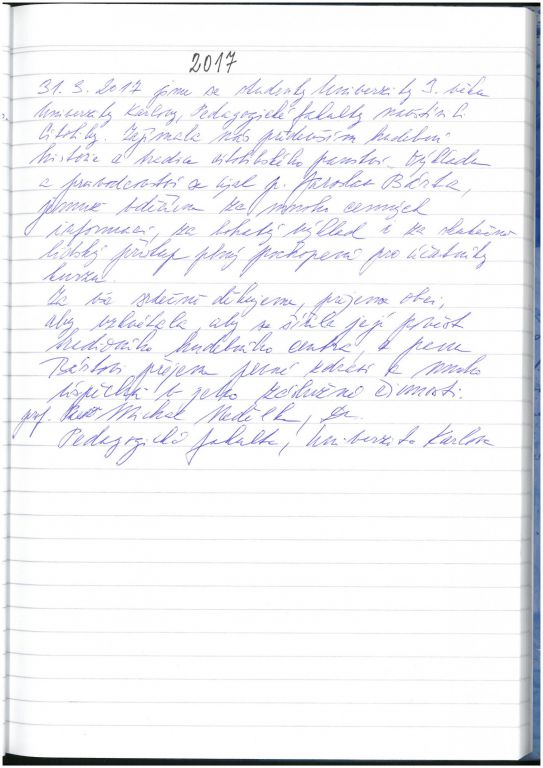 2017
31. 3. 2017 jsme se studenty Univerzity 3. věku
Univerzity Karlovy, Pedagogické fakulty navštívili
Citoliby. Zajímala nás především hudební
historie a tradice citolibského panství. Výkladu
a průvodcovství se ujal p. Jaroslav Bárta,
jemuž vděčíme za mnoho cenných
informací, za bohatý výklad i za skutečně
lidský přístup plný pochopení pro účastníky
kurzu.
Za vše srdečně děkujeme, přejeme obci,
aby vzkvétala aby se šířila její pověst
tradičního hudebního centra a panu
Bártovi přejeme pevné zdraví a mnoho
úspěchů v jeho záslužné činnosti.
prof. Michal Nedělka, Dr.
Pedagogická fakulta, Univerzita Karlova